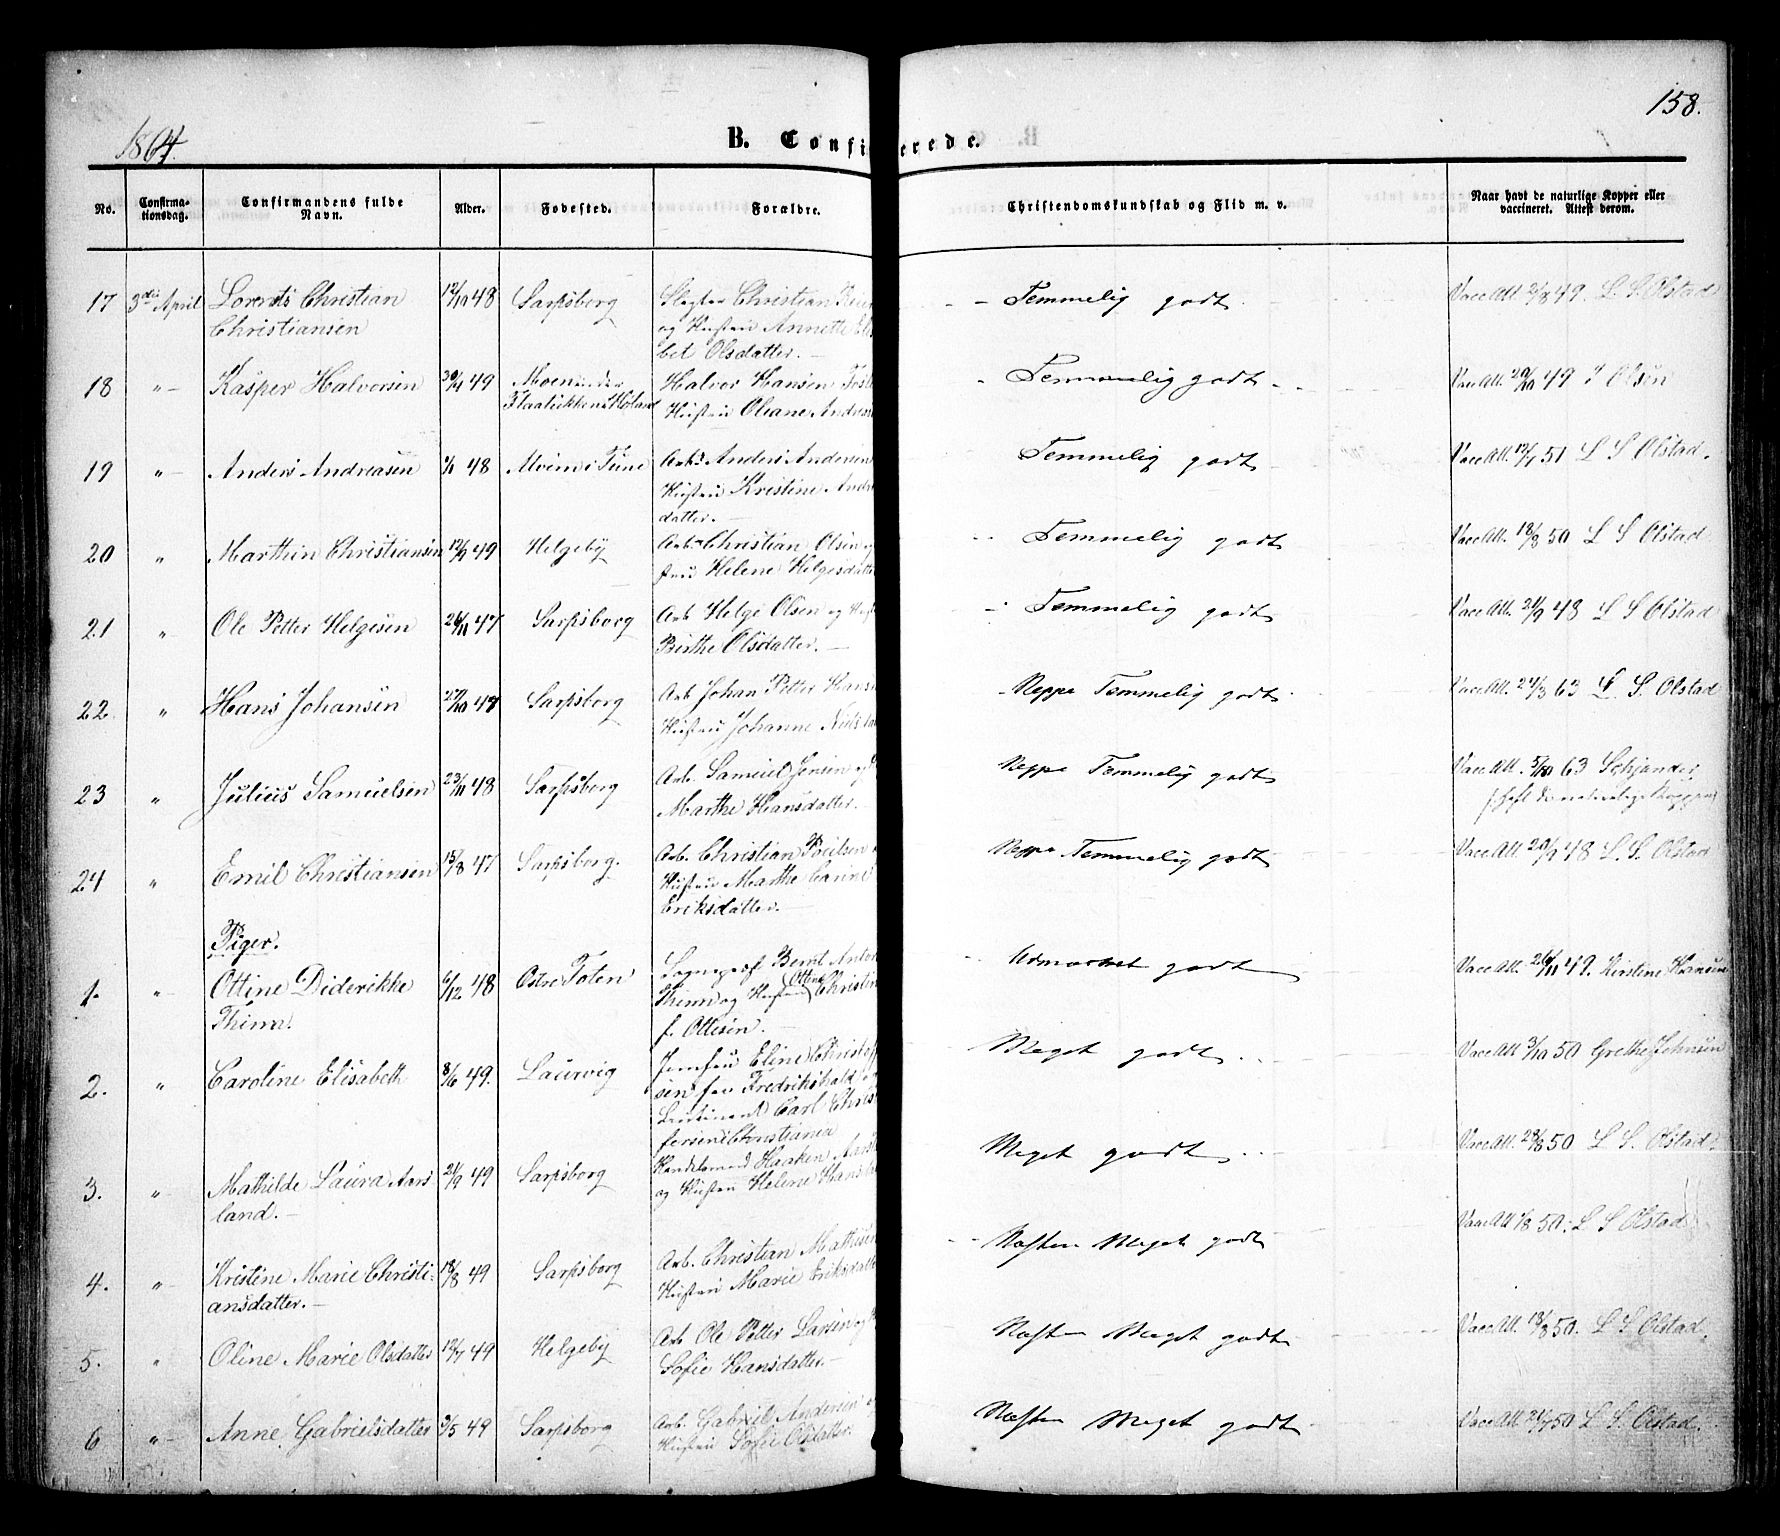 158.
1864.
B. Confi erede.
No. Confirmationsdag. Confirmandens fulde Navn. Alder. Fødested. Forældre. Christendomskundskab og Flid m. v. Naar havt de naturlige Kopper eller vaccineret. Attest derom.
17 3die April Lorents Christian 12/10 48 Sarpsborg Slagter Christian Temmelig godt Vacc Att. 2/8 49. L. S. Olstad
Christiansen og Hustru Annette Elis
bet Olsdatter.
18 " Kasper Halvorsen 30/4 49 Moen under Halvor Hansen Temmelig godt Vacc Att. 20/10 49 Olsen
Høland Hustru Oliane Andreas
19 " Anders Andreasen 48 Alvim i Tune Arb. Anders Andersen Temmelig godt Vacc Att. 12/7 51 L S Olstad.
Hustru Kristine Andr
datter.
20 " Marthin Christiansen 12/9 49 Helgeby Arb. Christian Olsen og Temmelig godt Vacc Att. 18/8 50 L S Olstad
stru Helene Helgesdatte
21 " Ole Petter Helgesen 26/11 47 Sarpsborg Arb Helge Olsen og Hust Temmelig godt Vacc Att. 21/9 48 L S Olstad
Birthe Olsdatter.
22. " Hans Johansen 27/10 47 Sarpsborg Arb Johan Petter Hans Neppe Temmelig godt Vacc Att. 24/3 63 L. S. Olstad
Hustru Johanne Nils
23 " Julius Samuelsen 23/11 48 Sarpsborg Arb. Samuel Jensen og Neppe Temmelig godt Vacc Att. 5/10 63 Schjander
Marthe Hansdatter. (haft de naturlige Kopper)
24 " Emil Christiansen 15/8 47 Sarpsborg. Arb. Christian Poulsen Neppe Temmelig godt Vacc Att. 20/9 48 L. S. Olstad
Hustru Marthe
Eriksdatter.
Piger.
1. " Ottine Diderikke 6/12 48 Østre Toten Sogneprest Bernt Anton Udmærket godt Vacc Att. 26/11 49. Kirstine Hansen
Thina. og Hustru Ottine Christin
f. Ottesen.
2. " Caroline Elisabeth 8/6 49. Laurvig Jomfru Eline Christof Meget godt Vacc Att 3/10 50 Grethe Johnsen
sen fra Fredrikshald
Leutinant Carl Chris
fersen i Christiania
3. " Mathilde Laura Aars 21/9 49 Sarpsborg Handelsmand Haaken Aars Meget godt Vacc Att. 28/8 50 L S. Olstad.
land. og Hustru Helene Hans
4. " Kristine Marie Christi 18/8 49 Sarpsborg Arb. Christian Mathisen Næsten Meget godt Vacc Att 1/8 50. L S Olstad
ansdatter. Hustru Marie Eriksdatte
5. " Oline Marie Olsdatter 12/7 49 Helgeby Arb Ole Petter Larsen og Næsten Meget godt Vacc Att. 18/8 50. L S Olstad.
Sofie Hansdatter.
6 " Anne Gabrielsdatter 3/5 49 Sarpsborg Arb. Gabriel Andersen Næsten Meget godt Vacc Att 21/7 50 L S. Olstad.
Hustru Sofie Olsdatter.